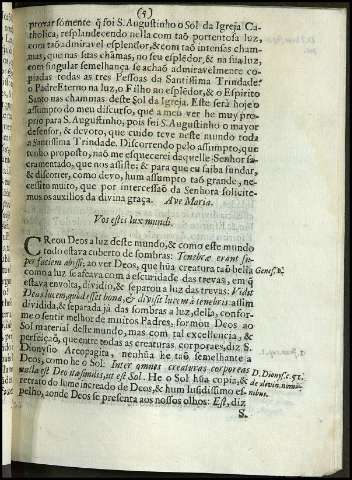 (5)
provar sómente q̃ foi S. Augustinho o Sol da Igreja Ca-
tholica, resplandecendo nella com taõ portentosa luz,
com taõ admiravel esplendor, & com taõ intensas cham-
mas, que nas suas chãmas, no seu esplẽdor, & na sua luz,
com singular semelhança se achaõ admiravelmente co-
piadas todas as tres Pessoas da Santissima Trindade:
o Padre Eterno na luz, o Filho no esplẽdor, & o Espirito
Santo nas chammas deste Sol da Igreja. Este será hoje o
assumpto do meu discurso, que a meu ver he muy pro-
prio para S. Augustinho, pois foi S. Augustinho o mayor
defensor, & devoto, que cuido teve neste mundo toda
a Santissima Trindade. Discorrendo pelo assumpto, que
tenho proposto, naõ me esquecerei daquelle Senhor sa-
cramentado, que nos assiste; & para que eu saiba fundar,
& discorrer, como devo, hum assumpto taõ grande, ne-
cessito muito, que por intercessaõ da Senhora solicite-
mos os auxilios da divina graça. Ave Maria.
Vos estis lux mundi.
CReou Deos a luz deste mundo, & como este mundo
todo estava cuberto de sombras: Tenebræ erant su-
per faciem abyssi; ao ver Deos, que hũa creatura taõ bella Genes. 1.
como a luz se afeava com a escuridade das trevas, em q̃
estava envolta, dividio, & separou a luz das trevas: Vidit
Deus lucem, quòd esset bona, & divisit lucem à tenebris: assim
dividida, & separada já das sombras a luz, della, confor-
me o sentir melhor de muitos Padres, formou Deos ao
Sol material deste mundo, mas com tal excellencia, &
perfeiçaõ, que entre todas as creaturas corporaes, diz S.
Dionysio Areopagita, nenhũa he taõ semelhante a
Deos, como he o Sol: Inter omnes creaturas corporeas D. Dionys. c. 4.
nulla est Deo ita similis, ut est Sol. He o Sol hũa copia, & de divin. nomi-
retrato do lume increado de Deos, & hum lusidissimo es- nibus.
pelho, aonde Deos se presenta aos nossos olhos: Est, diz
S.